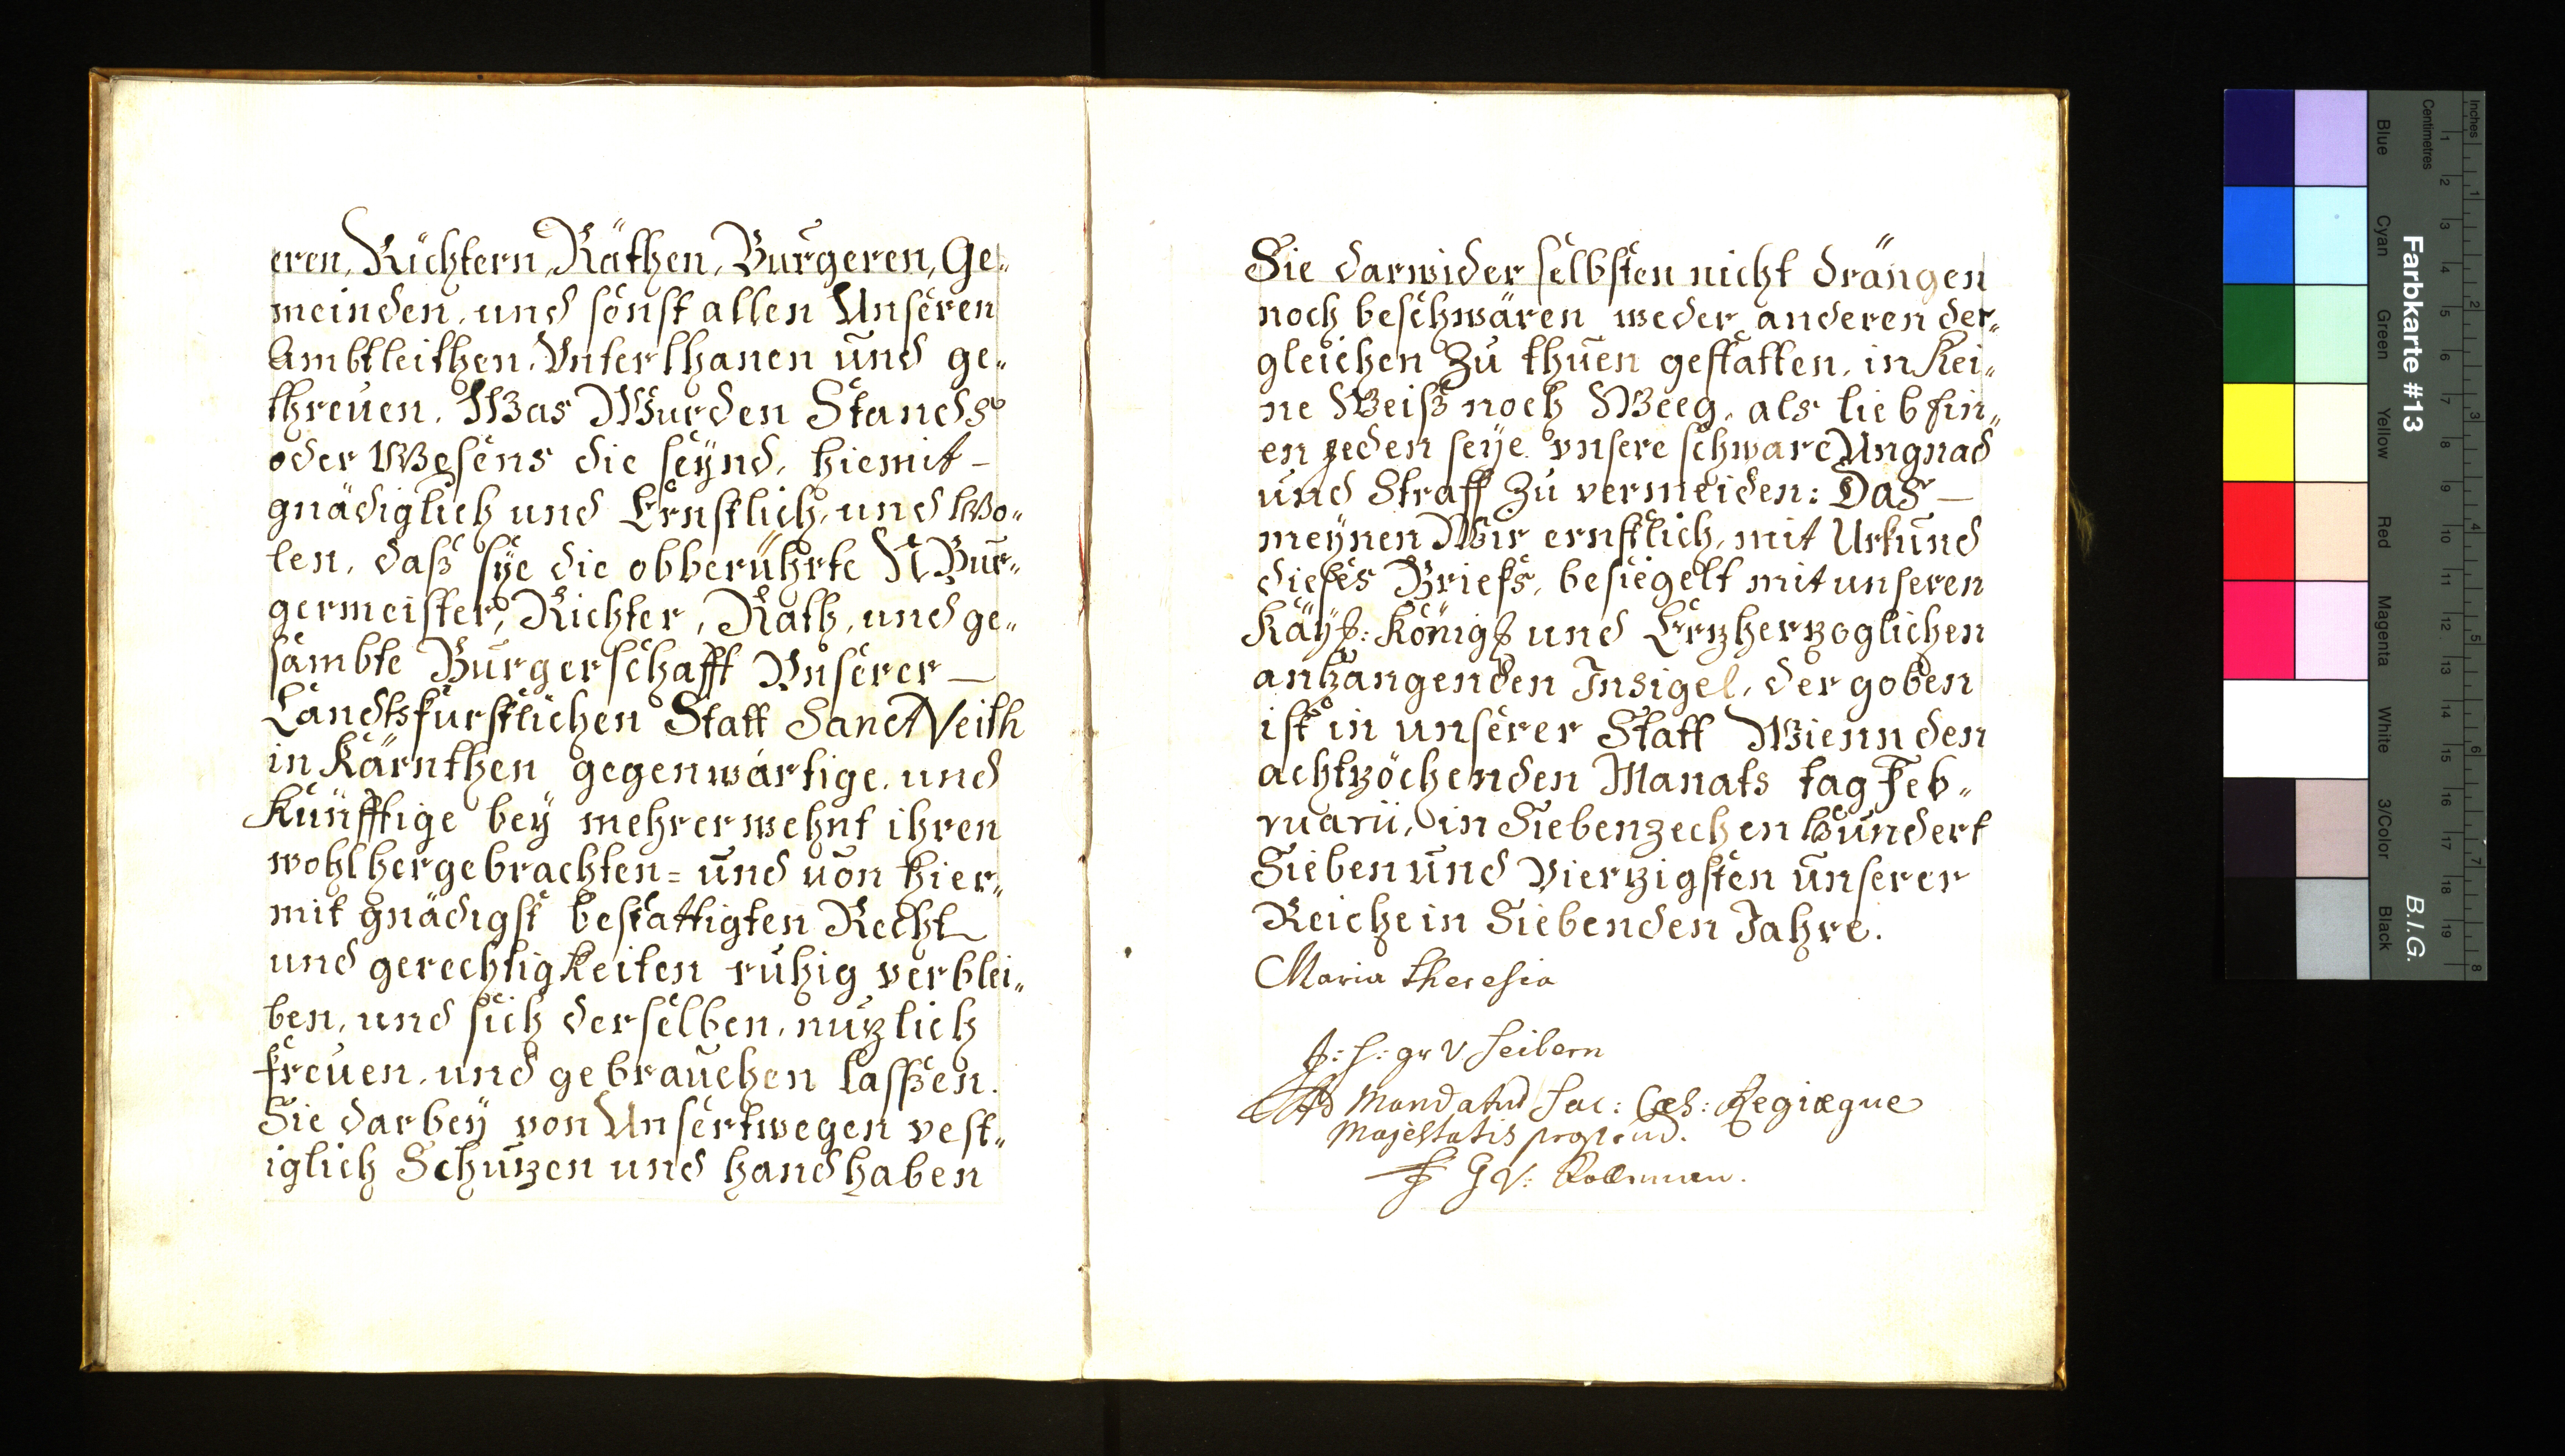 eren, Richtern, Räthen, Burgeren, Ge„
meinden, und sonst allen Unseren
Ambtleithen, Unterthanen und ge„
threuen, Was Wurden Stands
oder Wesens die seynd, hiemit –
gnädiglich und Ernstlich, und Wo„
len, daß sye die obberührte N Bur„
germeister, Richter, Rath, und ge„
sambte Burgerschafft Unserer –
Landtsfürstlichen Statt Sanct Veith
in Kärnthen gegenwärtige, und
Künfftige bey mehrerwehnt ihren
wohlhergebrachten = und von hier„
mit gnädigst bestattigten Recht
und gerechtigkeiten ruhig verblei„
ben, und sich derselben, nuzlich
freuen, und gebrauchen lassen.
Sie darbey von Unsertwegen vest„
iglich Schuzen und handhaben
Sie darwider selbsten nicht drängen
noch beschwären weder anderen der„
gleichen Zu thuen gestatten, in Kei„
ne Weiß noch Weeg, als lieb ein„
en jeden seye unsere schware Ungnad
und Straff Zu vermeiden: Das –
meynen Wir ernstlich, mit Urkund
dieses Briefs, besiegelt mit unseren
Kayß: Königß und Erzherzoglichen
anhangenden Insigel, der goben
ist in unserer Statt Wienn den
achtzöchenden Manats tag Feb„
ruarii, in Siebenzechen hundert
Sieben und Vierzigsten unserer
Reiche in Siebenden Jahre.
Maria Theresia
J: F: gr V Seilern
Ad Mandatum Sac: Cæs: Regiæque
Majestatis proprium.
J G V:
Farbkarte #13
B.I.G.
Inches
Centimetres
1 2 3 4 5 6 7 8 9 10 11 12 13 14 15 16 17 18 19
1 2 3 4 5 6 7 8
Blue
Cyan
Green
Yellow
Red
Magenta
White
3/Color
Black